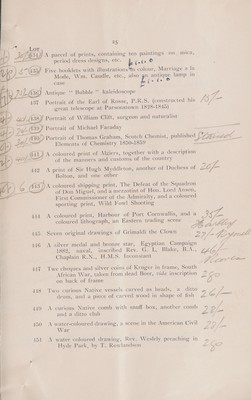 25
Lot
A parcel of prints, containing ten paintings on mica,
period dress designs, etc. £1-1-0
Five booklets with illustrations in colour, Marriage a la
Mode, Wm. Caudle, etc., also an antique lamp in
case £1-1-0
Antique "Bubble" kaleidoscope
137 Portrait of the Earl of Rosse, P.R.S. (constructed his
great telescope at Parsonstown 1828-1845) 15/-
Portrait of William Clift, surgeon and naturalist
Portrait of Michael Faraday
Portrait of Thomas Graham, Scotch Chemist, published
Elements of Chemistry 1850-1859
A coloured print of Algiers, together with a description
of the manners and customs of the country
142 A print of Sir Hugh Myddleton, another of Duchess of
Bolton, and one other 20/-
A coloured shipping print, The Defeat of the Squadron
of Don Miguel, and a mezzotint of Hon. Lord Anson,
First Commissioner of the Admiralty, and a coloured
sporting print, Wild Fowl Shooting
144 A coloured print, Harbour of Port Cornwallis, and a
coloured lithograph, an Eastern trading scene 35/-
145 Seven original drawings of Grimaldi the Clown
146 A silver medal and bronze star, Egyptian Campaign
1882, naval, inscribed Rev. G. L. Blake, B.A.,
Chaplain R.N., H.M.S. Inconstant
147 Two cheques and silver coins of Kruger in frame, South
African War, taken from dead Boer, vide inscription
on back of frame
148 Two curious Native vessels carved as heads, a ditto
drum, and a piece of carved wood in shape of fish 26/-
149 A curious Native comb with snuff box, another comb
and a ditto club 28/-
150 A water-coloured drawing, a scene in the American Civil
War 28/-
151 A water-coloured drawing, Rev. Wesley preaching in
Hyde Park, by T. Rowlandson